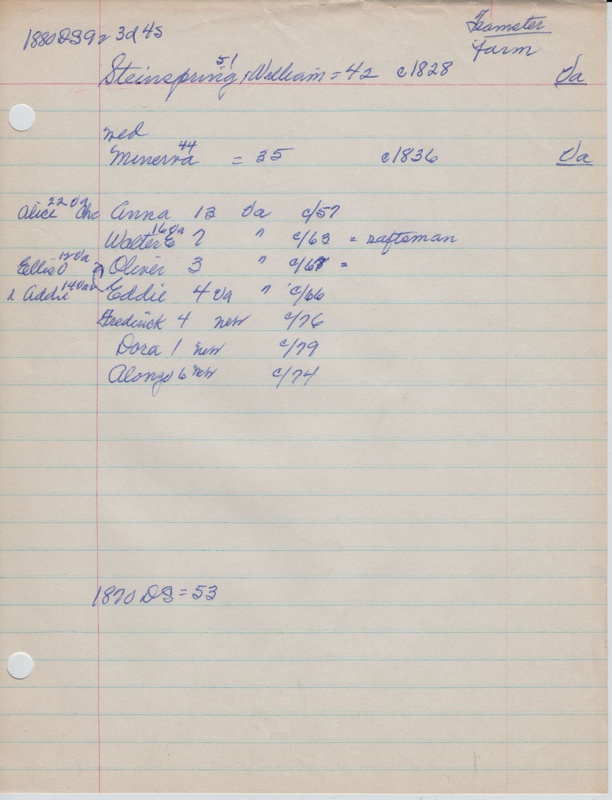 1880 DS 92 3d 45
Teamster
Farm
51
Steinspring, William = 42 c1828 Va
med
44
Minerva = 35 c1836 Va
Alice 22 Va Anna 13 Va c/57
Walter E 16 Va 7 " c/63 = raftsman
Ellis O 12 Va Oliver 3 " c/67 =
& Addie 14 Va Eddie 4 Va " c/66
Fredrick 4 new c/76
Dora 1 new c/79
Alonzo 6 new c/74
1870 DS = 53